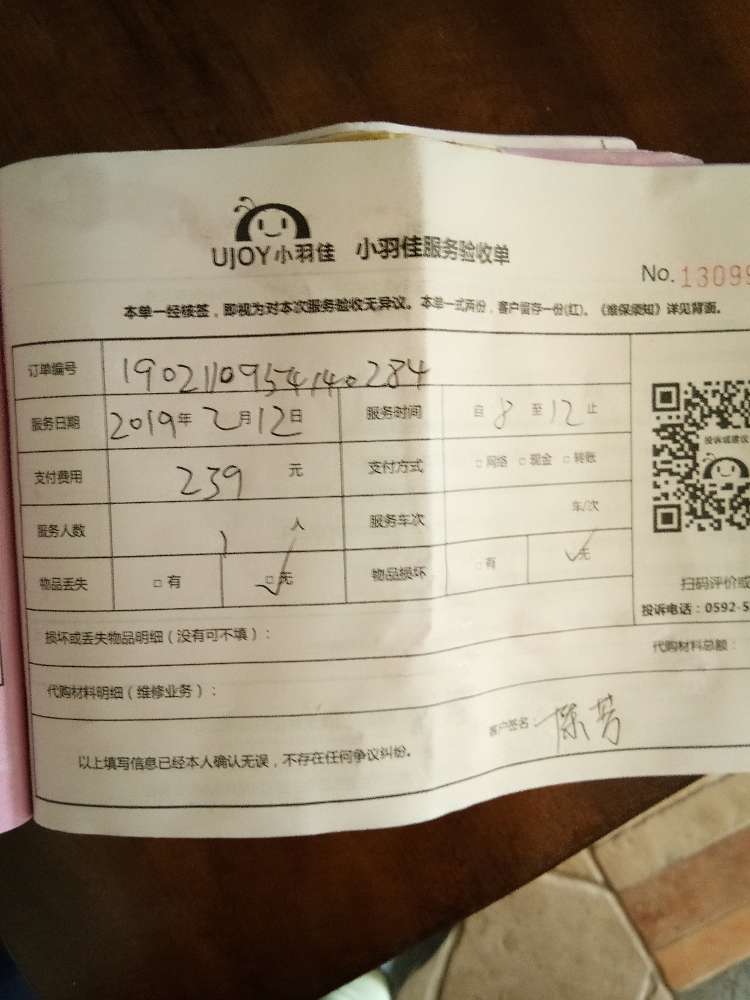 UJOY小羽佳 小羽佳服务验收单
No.13099
本单一经核签，即视为对本次服务验收无异议。本单一式两份，客户留存一份(红)。《维保须知》详见背面。
订单编号 1902110954140284
服务日期 2019年2月12日 服务时间 自8至12止
投诉或建议
支付费用 239元 支付方式 □网络 □现金 □转账
服务人数 1人 服务车次 车/次
物品丢失 □有 □无 物品损坏 □有 无
扫码评价或
投诉电话：0592-5
损坏或丢失物品明细（没有可不填）：
代购材料总额：
代购材料明细（维修业务）：
客户签名：陈芳
以上填写信息已经本人确认无误，不存在任何争议纠纷。